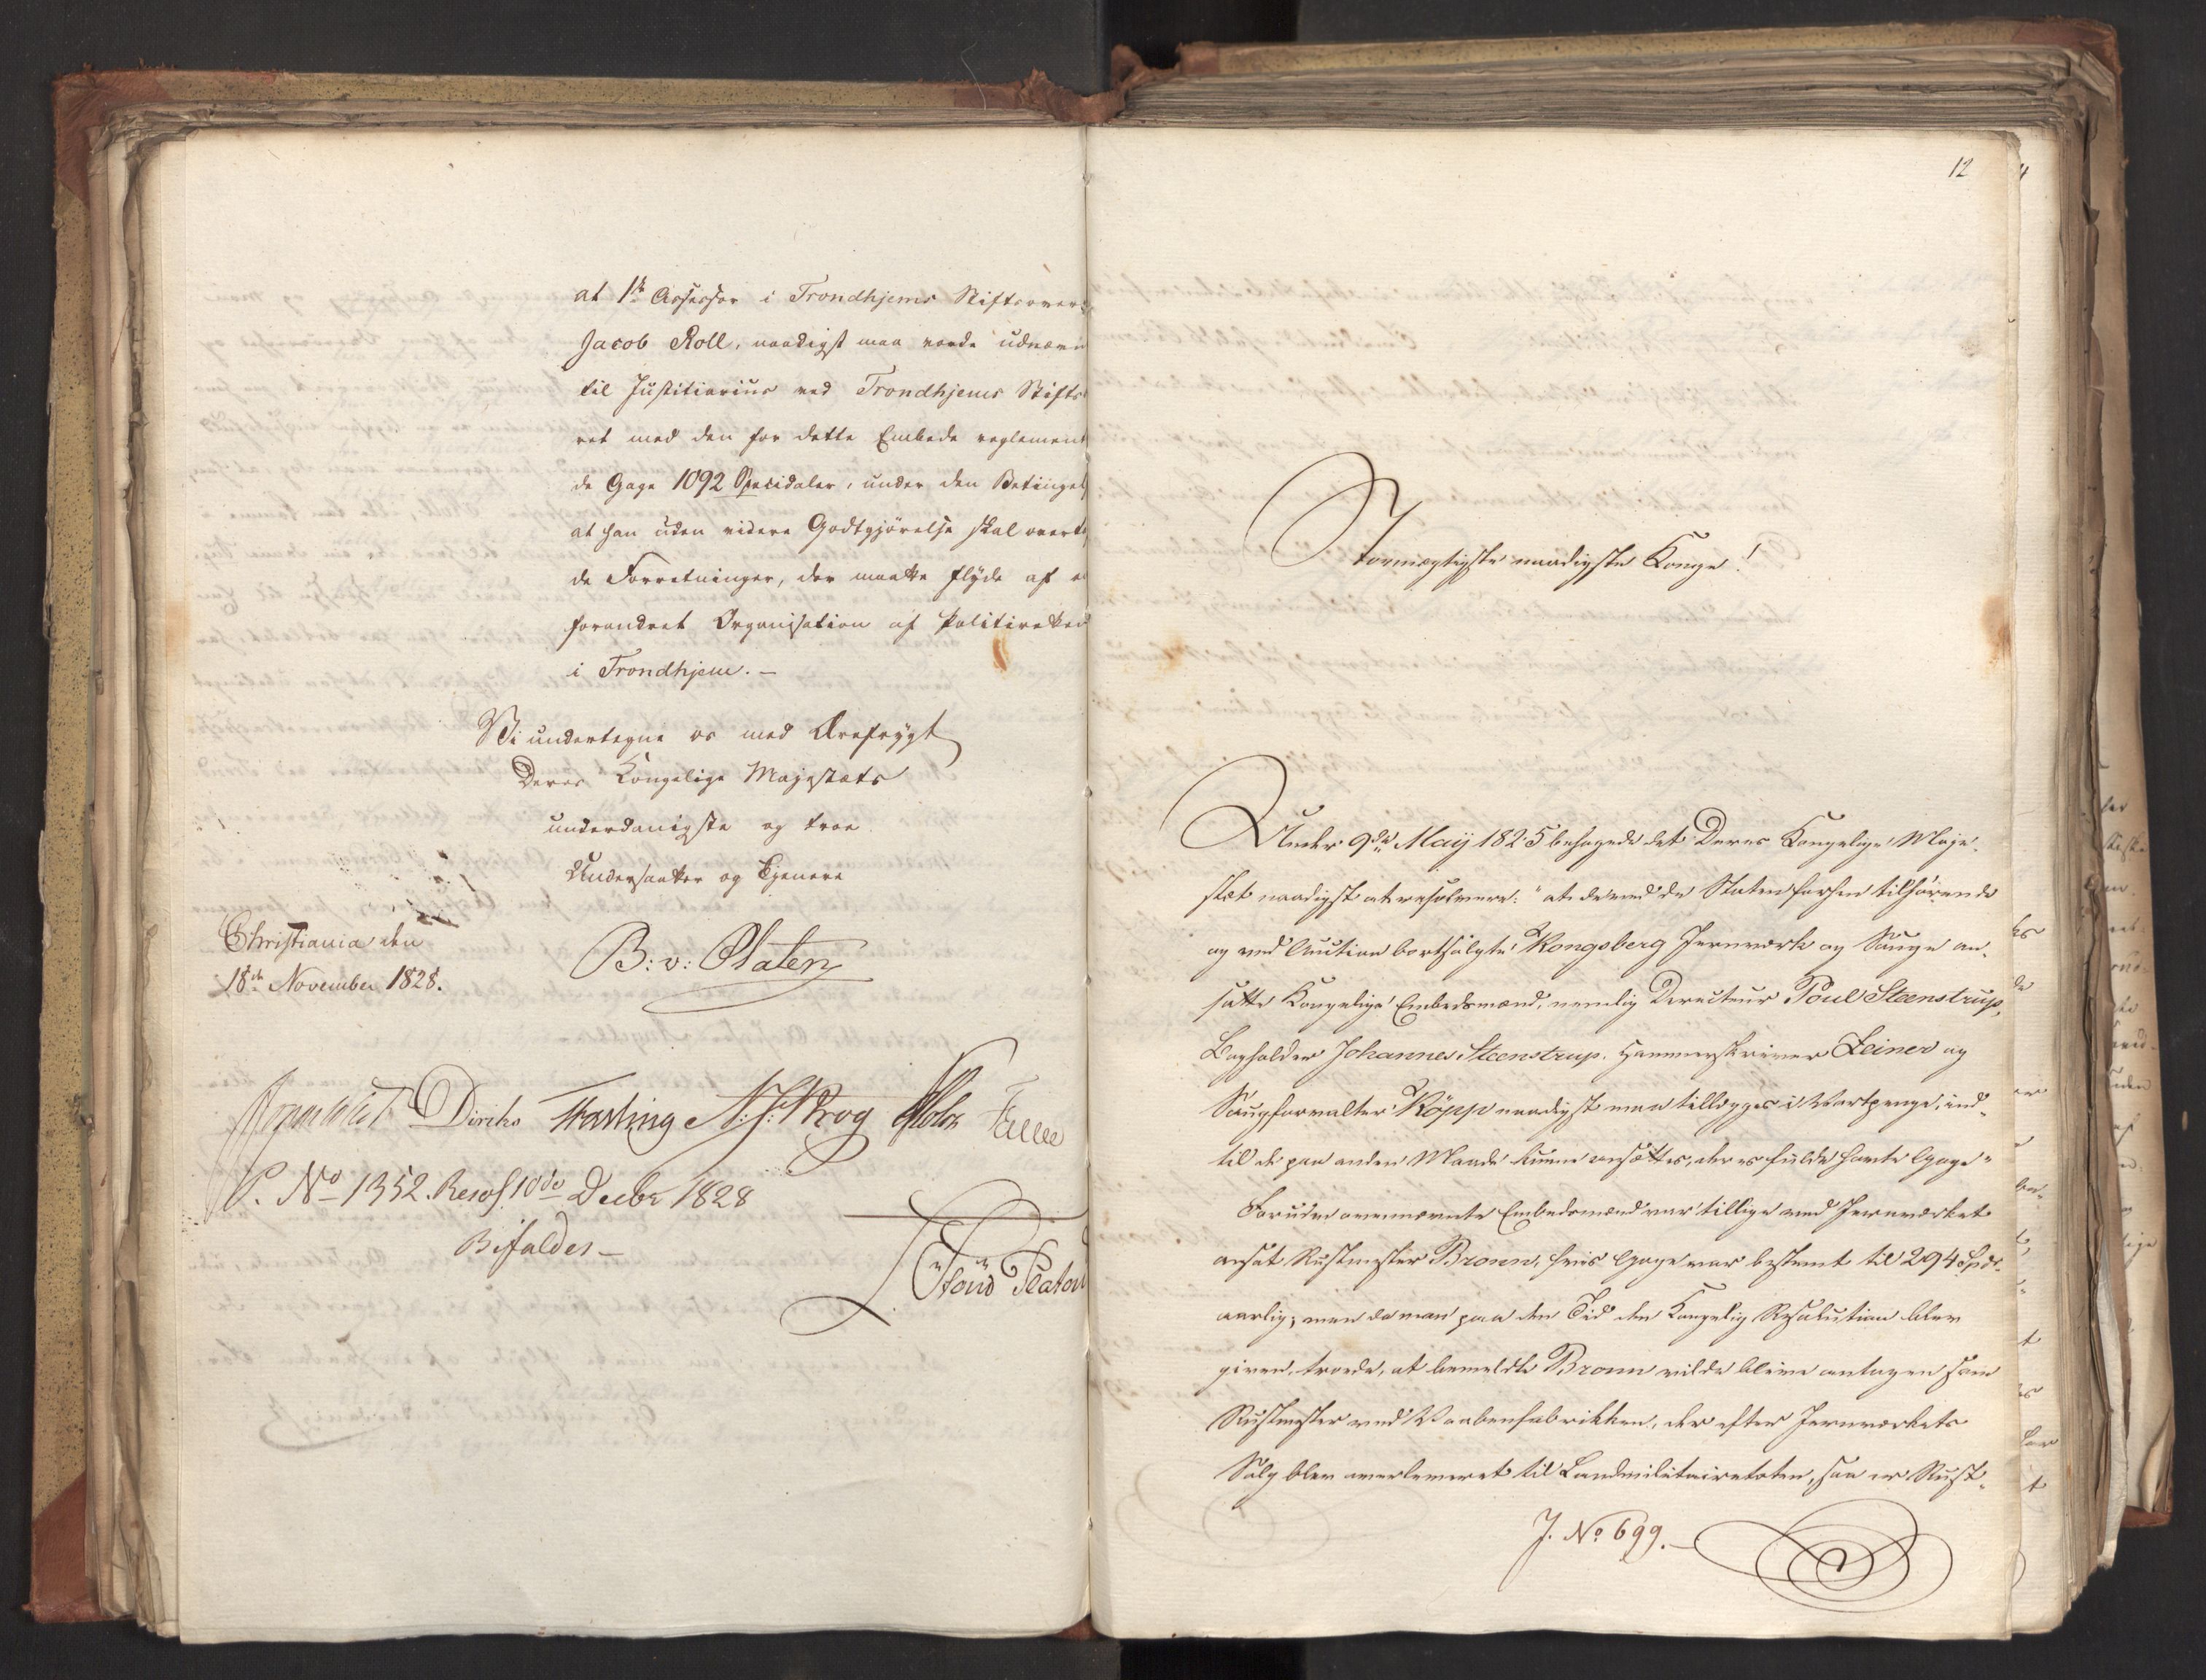 at 1ste Assessor i Trondhjems Stiftsover-
Jacob Roll, naadigst maa vorde udnævn
til Justitiarius ved Trondhjems Stifts
ret med den for dette Embede reglement
de Gage 1092 Specidaler, under den Betingels
at han uden videre Godtgjörelse skal overt
de Forretninger, der maatte flyde af e
forandret Organisation af Politirettet
i Trondhjem. –
Vi undertegne os med Ærefrygt
Deres Kongelige Majestæts
underdanigste og troe
Undersaatter og Tjenere
Christiania den
18de November 1828.
B: v: Platen
Diriks Fasting N: J: Krog Holst
P. No 1352. Resol. 10de Decbr 1828
Bifaldes –
12
Stormægtigste naadigste Konge!
Under 9de Maij 1825 behagede det Deres Kongelige Maje-
stæt naadigst at resolvere: "at de ved de Staten forhen tilhörende
og ved Auction bortsolgte Kongsberg Jernværk og Sauge an-
satte Kongelige Embedsmænd, nemlig Directeur Poul Steenstrup,
Bogholder Johannes Steenstrup, Hammerskriver Zeiner og
Saugforvalter Köpp naadigst maa tillægges i Vartpenge, ind-
til de paa anden Maade kunne ansættes, deres fulde havte Gage"
Foruden ovennævnte Embedsmænd var tillige ved Jernværket
ansat Rustmester Bronn, hvis Gage var bestemt til 294 Spdr.
aarlig; men da man paa den Tid den Kongelig Resolution blev
given, troede, at bemeldte Bronn vilde blive antagen som
Rustmester ved Vaabenfabrikken, der efter Jernværkets
Salg blev overleveret til Landmilitairetaten, saa er Rust-
J. No 699.